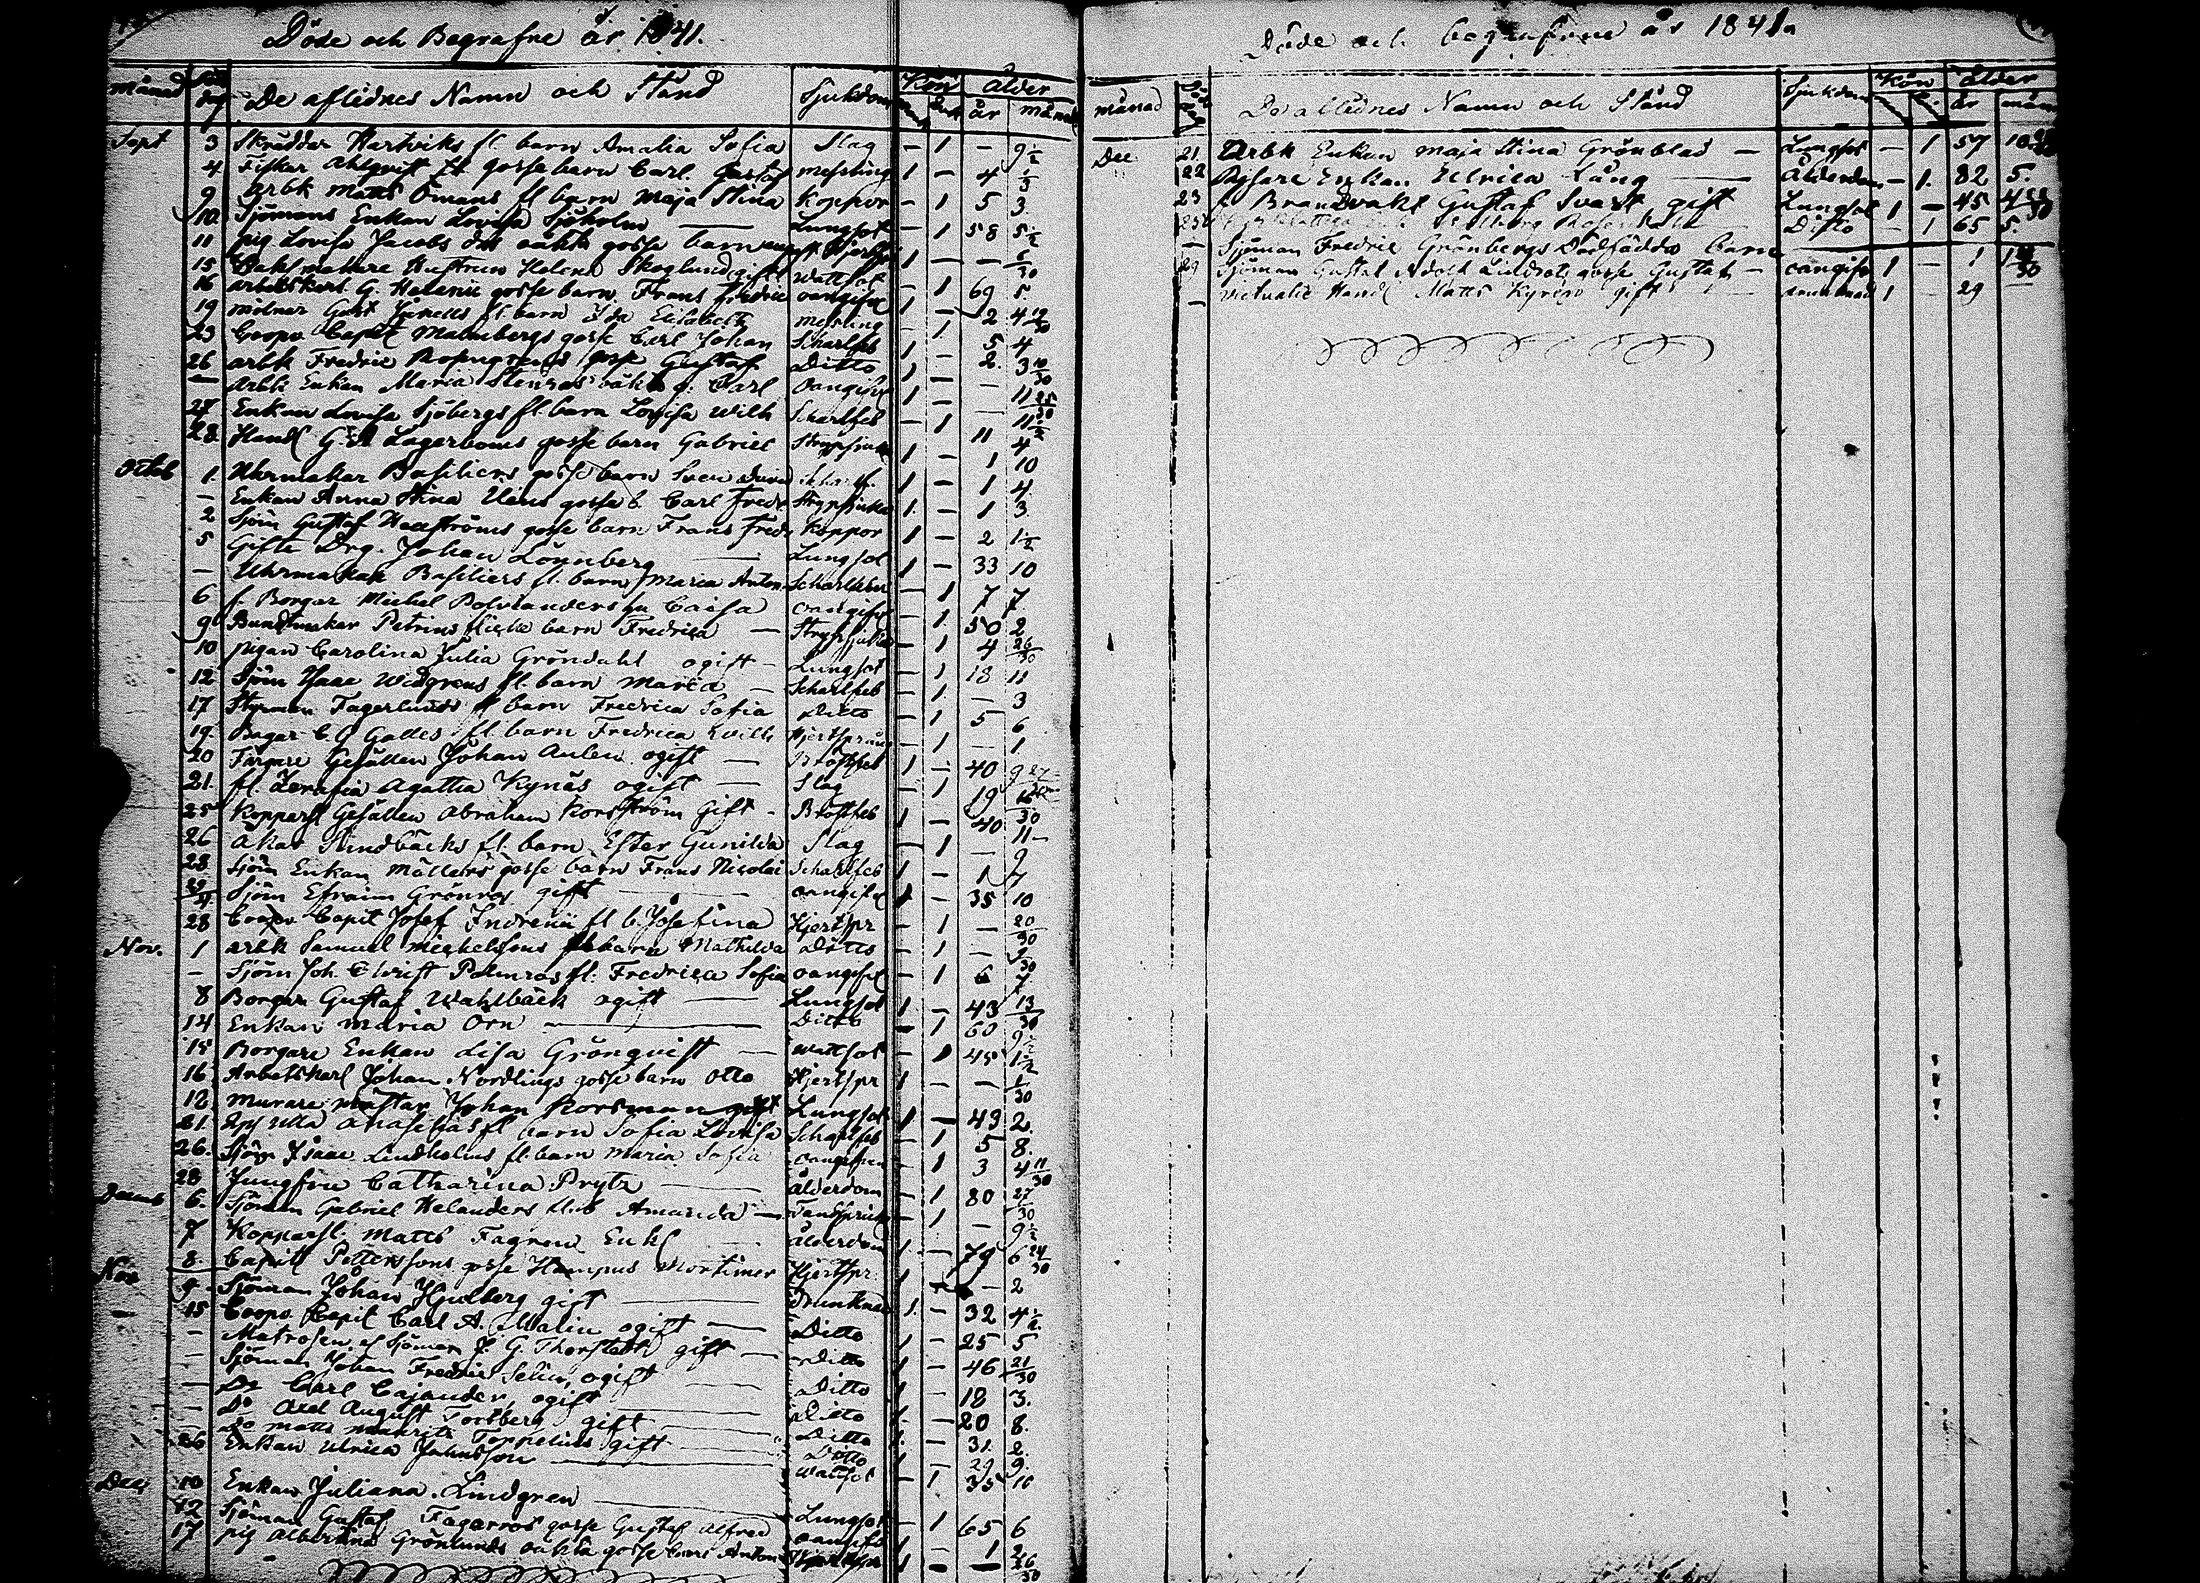 Döde och Begrafne år 1841.
månad dag De aflednes Namn och Stånd Sjukdom Kön ålder
år månad
Sept 3 Skräddar Hartviks fl barn Amalia Sofia Slag – 1 – 9½
4 Fiskar Ahlqvist gosse barn Carl Gustaf messling 1 – 4 ⅓
9 arbk Matts Ömans fl barn Maja Stina Koppor – 1 5 3.
10. Sjömans Enkan Lovisa Sjöholm — Lungsot – 1 58 5½
11 pig Lovisa Jacobs oäkta gosse barn 1 – –
15 Enkl makare Hustrun Helena Skoglund gift Wattsot – 1 69 5.
16 arbetskarl G. Helenii gosse barn Frans Fredric oangifvit 1 – 2 4
19 Gust fl barn Ida Elisabeth messling – 1
23 Coopv Capit Malmbergs gosse Carl Johan Scharlfeb 1 – 5 4
26 arbk Fredric gosse Gustaf Ditto 1 – 2. 3 10/30
— arbk Enkan Maria Stenros oäkta g. Carl oangifvit 1 – – 11 25/30
27 Enkan Lovisa Sjöbergs fl barn Lovisa Wilh Scharlfeb – 1 – 11½
28. Handl G. A Lagerboms gosse barn Gabriel Strypsjuka 1 – 11 4
Octob 1. Uhrmakar Basiliers gosse barn Sven 1 – 1 10
– Enkan Anna Stina gosse b. Carl Fredr Strypsjuka 1. – 1 4.
2 Sjöm Gustaf Hedströms gosse barn Frans Fredr Koppor 1 – 1 3.
5 Gifte Drg. Johan Lönnberg — Lungsot 1 – 33 10
– Uhrmakar Basiliers fl. barn Maria Anton Scharlfeber – 1 7 7.
6 f. Borgar Michel hu Caisa oangifvit – 1 50 2
9 Buntmakar Petrius flicke barn Fredrica — Strypsjuka – 1 4 26/30
10 pigan Carolina Julia Gröndahl ogift – Lungsot – 1 18 11
12 Sjöm Isaac Widgrens fl. barn Maria — Scharlfeb – 1 – 3
17 Styrman Fagerlunds fl barn Fredrica Sofia Ditto – 1 5 6
19. Bagar C. G Galles fl. barn Fredrica Hjertsprång – 1 – 1.
20 Färgare Gesällen Johan Aulen ogift — Bröstfeb 1 – 40 9
21. fl. Serafia Agatha Kynäs ogift — Slag – 1 19
25 Kopparsl Gesällen Abraham Korsström Gift – Bröstfeb 1 – 40 11 –
26 Åkar Strndbäcks fl. barn Ester Gunilda Slag – 1 – 9
28 Sjöm Enkan Möllers gosse barn Frans Nicolai Scharlfeb 1 – 1 7
Sjöm Efraim Grönros gift — oangifvit 1 – 35 10
28 Coopv Capit Josef Indrenii fl b. Josefina Hjertspr – 1 – 20/30
Nov. 1 arbk Samuel Michelssons fl barn Mathilda Ditto – 1 –
– Sjöm Joh. Christ Palmros fl. Fredrica Sofia oangifvit – 1 6 7
8 Borgar Gustaf Wahlbäck ogift — Lungsot 1 – 43 13/30
14 Enkan Maria Örn — Ditto – 1 60 9½
15 Borgare Enkan Lisa Grönqvist — Wattsot – 1 45 1½
16 Arbetskarl Johan Nordlings gosse barn Otto Hjertspr 1 – – 1/30
12 Murare mästar Johan Korsman gift Lungsot 1 – 43 2.
21. fl barn Sofia Lovisa Scharlfeb – 1 5 8.
26. Sjöm Isaac Lindholms fl. barn Maria Sofia oangifven – 1 3 4 11/30
28 Jungfru Catharina Prytz — ålderdom – 1 80 27/30
Decemb 6. Sjöman Gabriel Helanders fl. b Amanda — – 1 – 9½
7 Kopparsl. Matts Fagren Enkl — ålderdom 1 – 79 6 24/30
8. Capit Petterssons gosse Hampus Mortimer Hjertspr. 1 – – 2
Nov 9 Sjöman Johan Hjulberg gift — Drunknad 1. – 32 4½
– 15 Coopv Capit Carl A. Malin ogift — Ditto 1 – 25 5
– Matrosen el Sjöman J. G. Thorstedt gift — Ditto 1 – 46 21/30
– Sjöman Johan Fredric Selin, ogift — Ditto 1 – 18 3.
– Do Carl Cajander, ogift — Ditto 1. – 20 8.
– Do Axel August Torsberg gift — Ditto 1. – 31. 2.
– Do Matts Mauritz Toppelius gift — Ditto 1 – 29 9.
26 Enkan Ulrica Johansson — Wattsot – 1 35 10
Dec 10 Enkan Juliana Lindgren — Lungsot – 1 65 6
12 Sjöman Gustaf Fagerros gosse Gustaf Alfred oangifv 1 – 1 2
17 pig Albertina Grönlunds oäkta gosse barn Anton 1 – – 26/30
Döde och begrafne år 1841.
månad De aflednes Namn och Stånd Sjukdom Kön ålder
år mån
Dec 21. Arbk Enkan Maja Stina Grönblad — Lungsot – 1 57 10
22 Enkan Ulrica Lång — Ålderdom – 1. 82 5.
23 f. Brandvakt Gustaf Svart gift Lungsot 1 – 45 4
Ditto – 1 65 5.
— Sjöman Fredric Grönbergs Dödfödda barn
29 Sjöman Gustaf Adolf gosse Gustaf – oangifv 1 – 1 1
— Victualie Handl Matts Kyrén gift drunknad 1 – 29